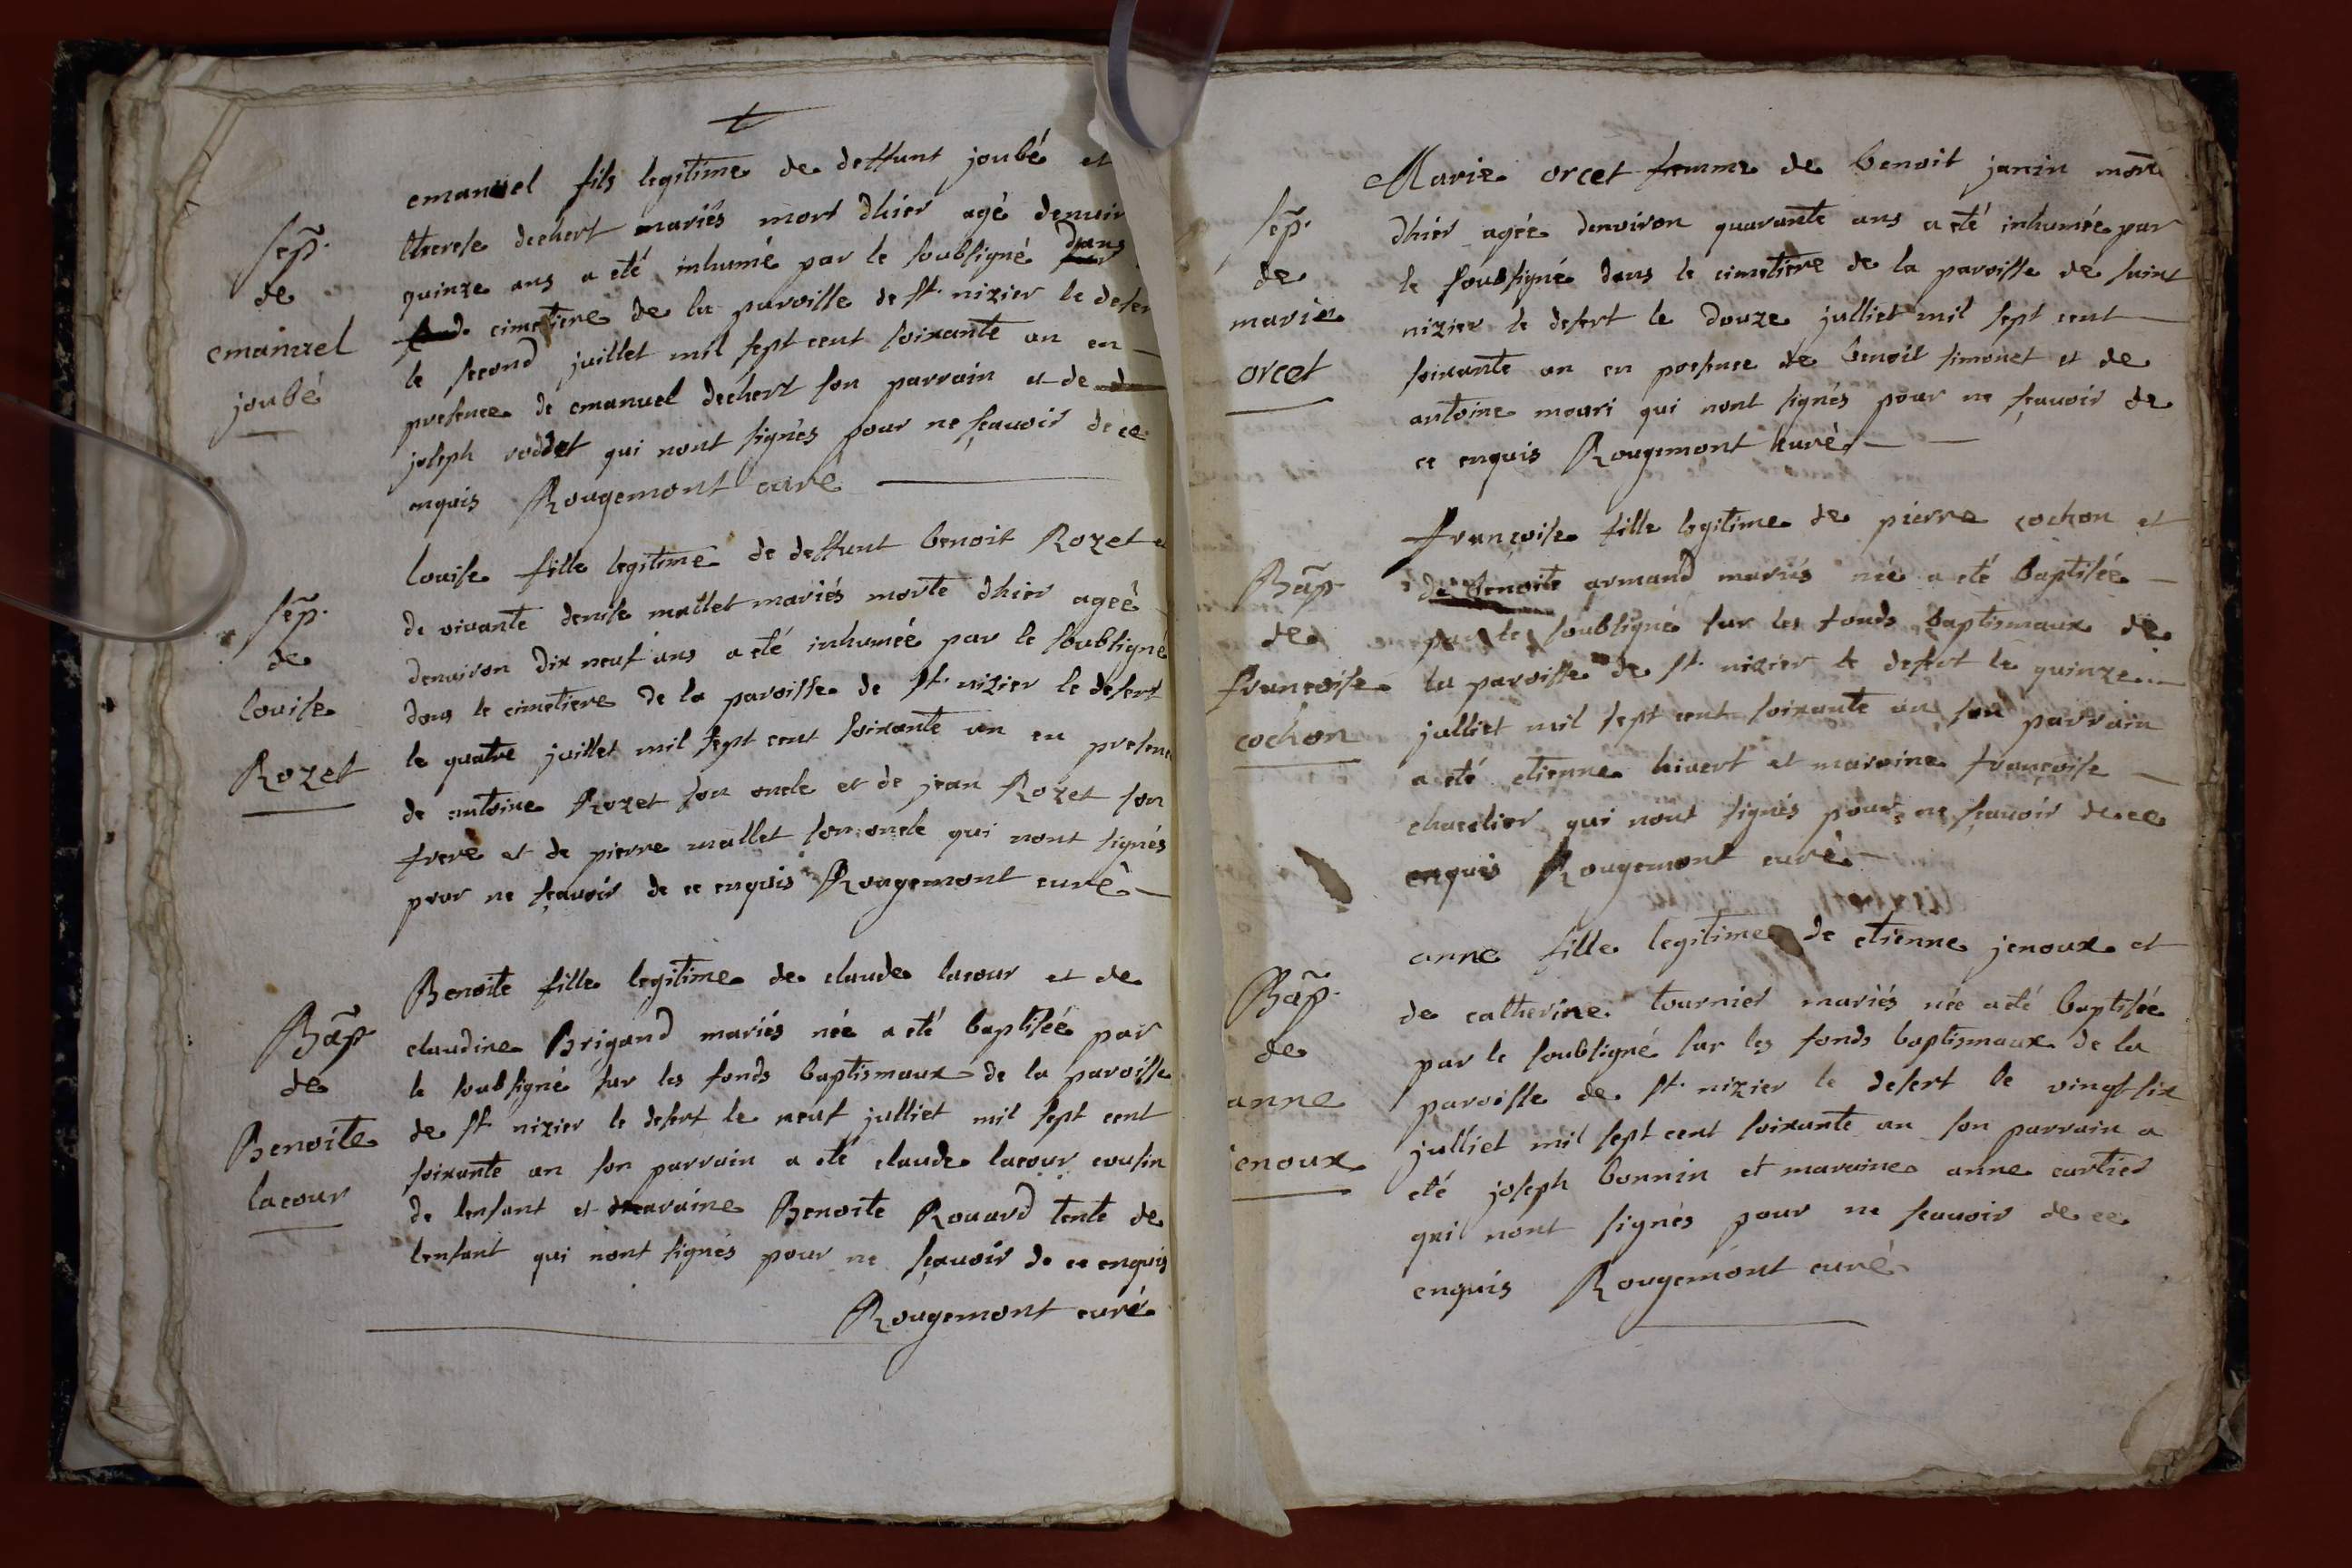 sep̃.
de
emanuel
joubé
emanuel fils legitime de deffunt joubé et
therese dechert mariés mort dhier agé denvir
quinze ans a eté inhumé par le soubsigné dans
cimetiere de la paroisse de st. nizier le deser
le second juillet mil sept cent soixante un en
presence de emanuel dechert son parrain et de
joseph roddet qui nont signés pour ne sçavoir de ce
enquis Rougemont curé
sep̃.
de
louise
Rozet
louise fille legitime de deffunt benoit Rozet e
de vivante denise mallet mariés morte dhier ageé
denviron dix neuf ans a eté inhumée par le soubsigné
dans le cimetiere de la paroisse de st. nizier le desert
le quatre juillet mil sept cent soixante un en presenc
de antoine Rozet son oncle et de jean Rozet son
frere et de pierre mallet son oncle qui nont signés
pour ne sçavoir de ce enquis Rougemont curé
Bap̃
de
Benoite
lacour
Benoite fille legitime de claude lacour et de
claudine Brigand mariés née a eté baptiseé par
le soubsigné sur les fonds baptismaux de la paroisse
de st. nizier le desert le neuf julliet mil sept cent
soixante un son parrain a eté claude lacour cousin
de lenfant et maraine Benoite Rouard tente de
lenfant qui nont signés pour ne sçavoir de ce enquis
Rougemont curé
sep̃.
de
marie
orcet
Marie orcet femme de benoit janin morte
dhier agée denviron quarante ans a eté inhumée par
le soubsigné dans le cimetiere de la paroisse de saint
nizier le desert le douze julliet mil sept cent
soixante un en presence de benoit simonet et de
antoine mouri qui nont signés pour ne sçavoir de
ce enquis Rougemont curé
Bap̃
de
françoise
cochon
françoise fille legitime de pierre cochon et
de benoite armand mariés née a eté baptisée
par le soubsigné sur les fonds baptismaux de
la paroisse de st. nizier le desert le quinze
julliet mil sept cent soixante un son parrain
a eté etienne hivert et maraine françoise
chatelier qui nont signés pour ne sçavoir de ce
enquis Rougemont curé
Bap̃.
de
anne
jenoux
anne fille legitime de etienne jenoux et
de catherine tournier mariés née a eté baptisée
par le soubsigné sur les fonds baptismaux de la
paroisse de st. nizier le desert le vingt six
julliet mil sept cent soixante un son parrain a
eté joseph bonnin et maraine anne cartier
qui nont signés pour ne scavoir de ce
enquis Rougemont curé